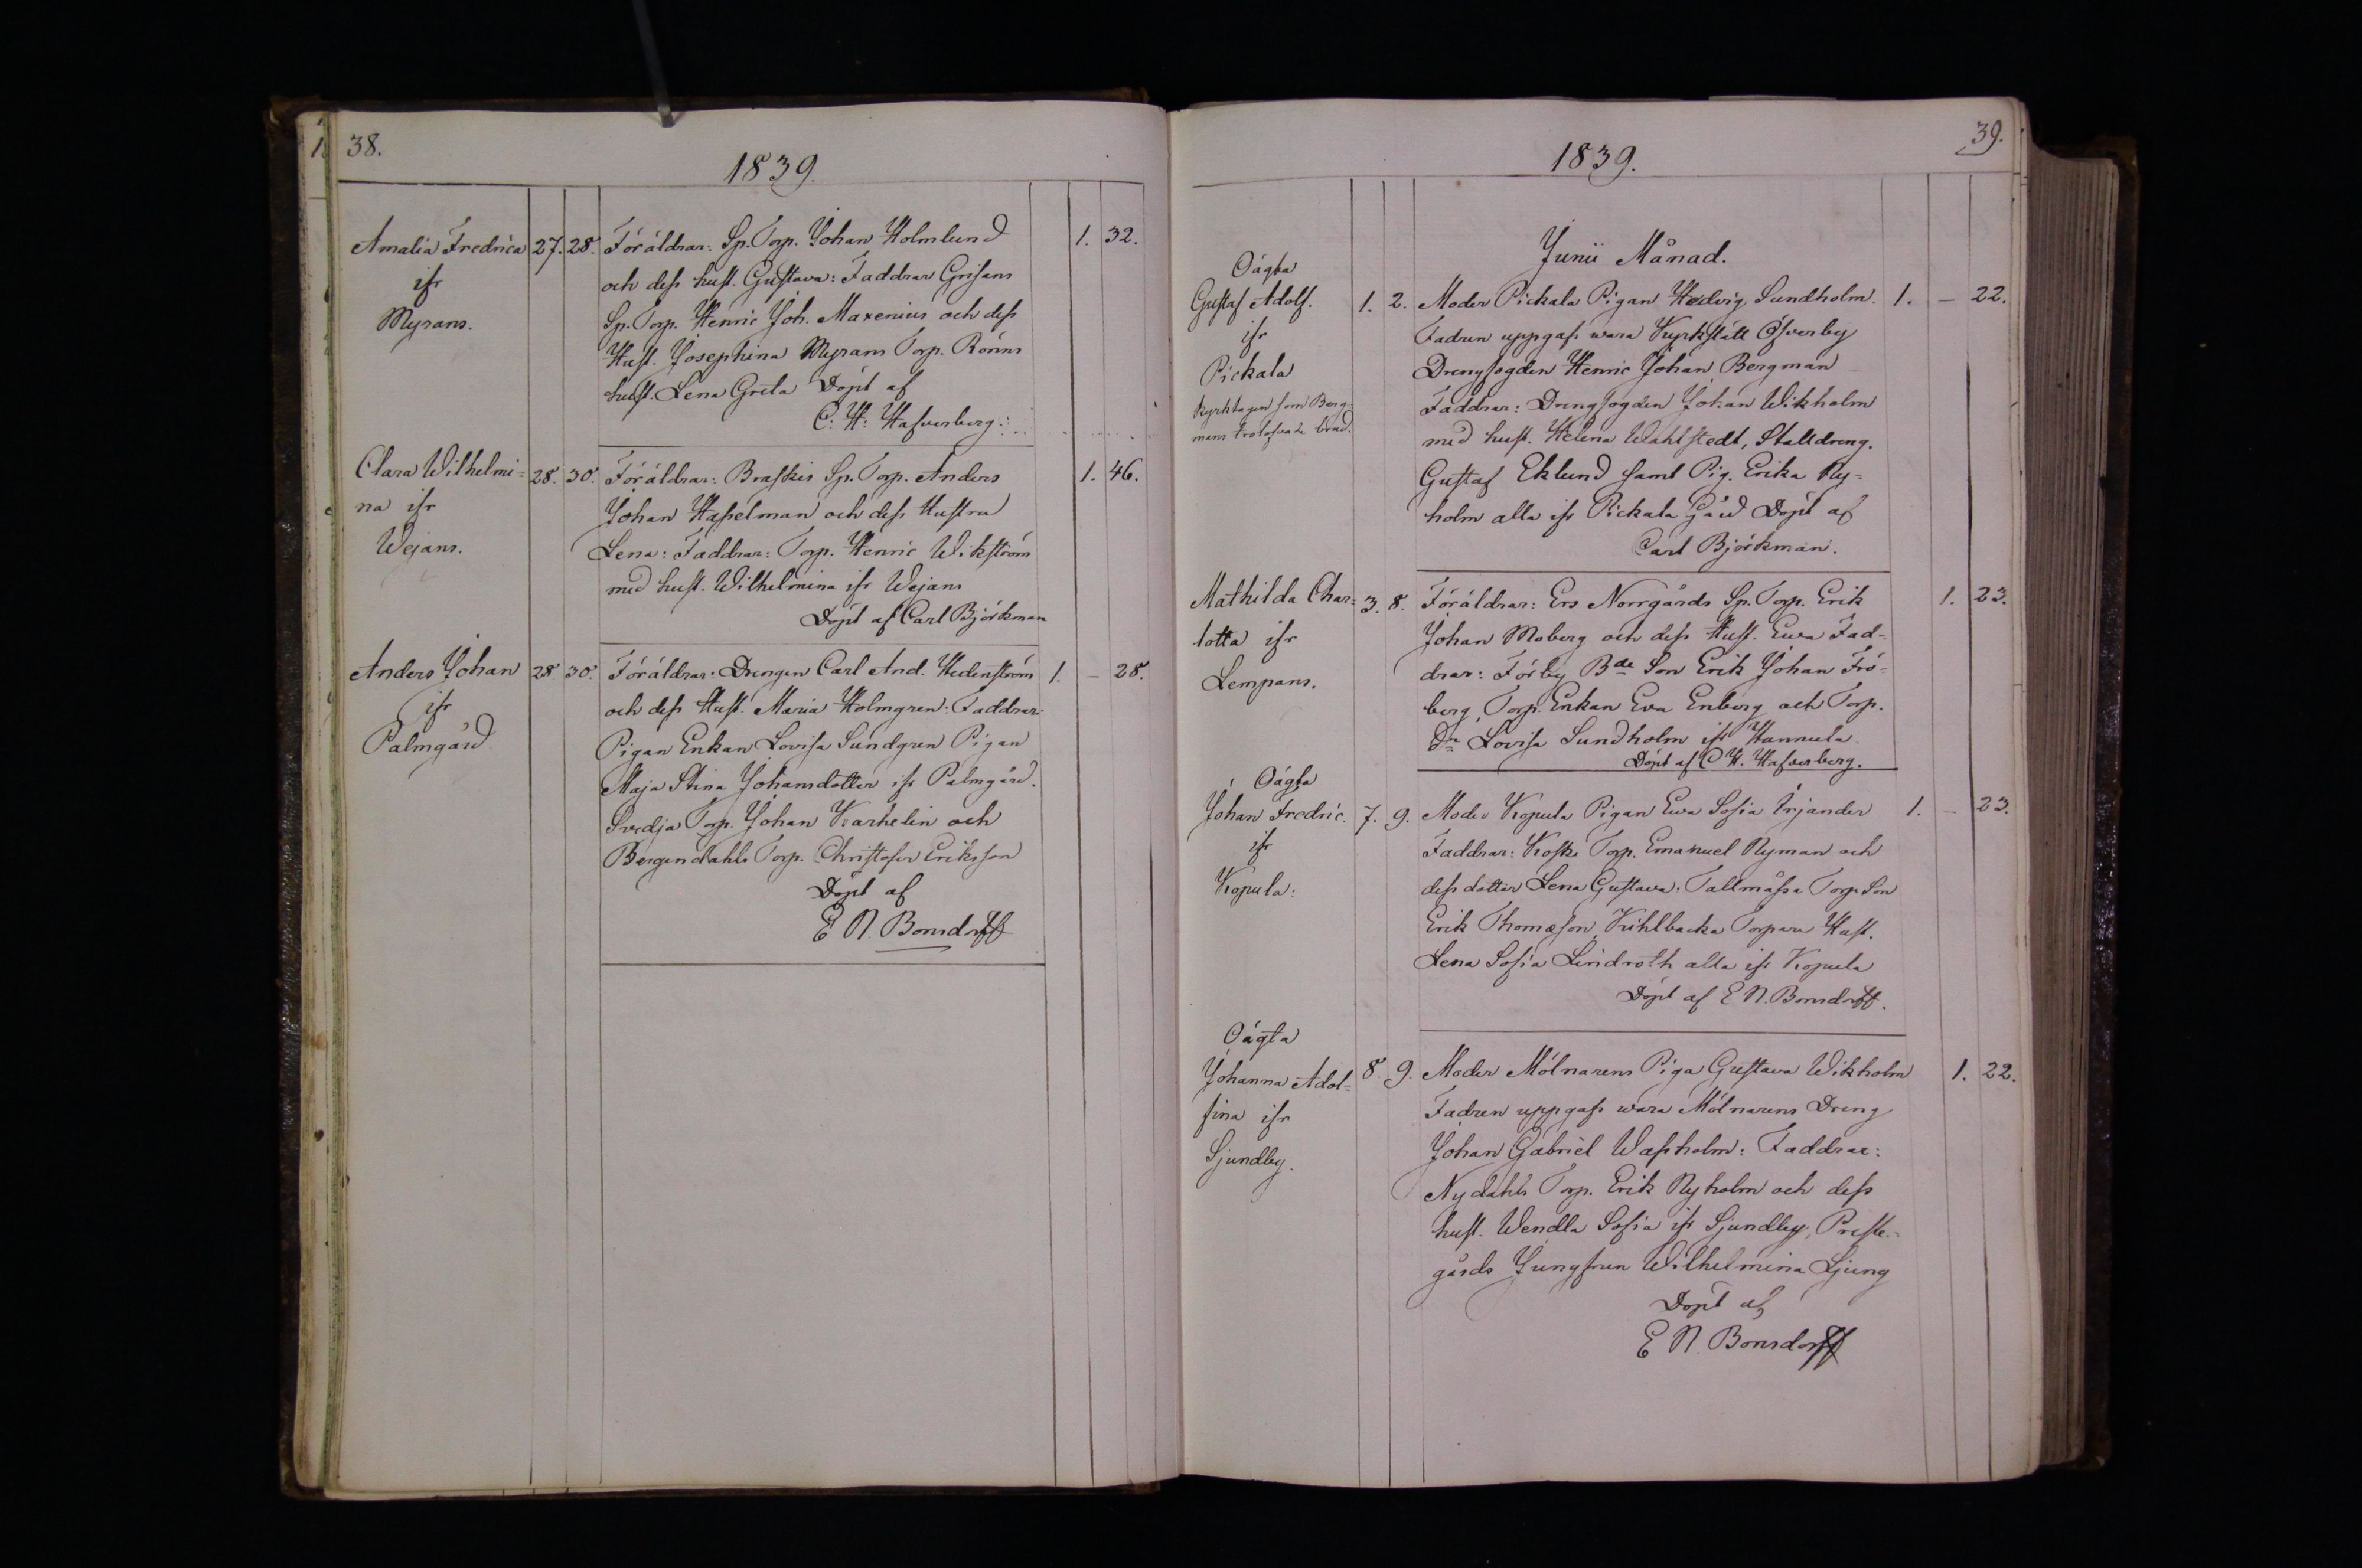 38.
1839.
Amalia Fredrica 27. 28. Föräldrar: Sp. Torp. Johan Holmlund 1. 32.
ifr och dess hust. Gustava: Faddrar Grisans
Myrans. Sp. Torp. Henric Joh. Maxenius och dess
Hust. Josephina Myrans Torp. Rönns
hust. Lena Greta Döpt af
C. H: Hafverberg:
Clara Wilhelmi= 28. 30. Föräldrar: Braskis Sp. Torp. Anders 1. 46.
na ifr Johan Hasselman och dess Hustru
Wejans. Lena: Faddrar: Torp. Henric Wikström
med hust. Wilhelmina ifr Wejans
Döpt af Carl Björkman
Anders Johan 28 30. Föräldrar: Drengen Carl And. Hedenström 1. – 28.
ifr och dess Hust. Maria Holmgren: Faddrar:
Palmgård Pigan Enkan Lovisa Sundgren Pigan
Maja Stina Johansdotter ifr Palmgård.
Svedja Torp. Johan Karhelin och
Bergendahls Torp. Christofer Eriksson
Döpt af
E N. Bonsdorff
39.
1839.
Junii Månad.
Oägta
Gustaf Adolf. 1. 2. Moder Pickala Pigan Hedvig Sundholm. 1. – 22.
ifr Fadren uppgafs wara Kyrkslätt Öfverby
Pickala Drengfogden Henric Johan Bergman
Kyrktagen som Berg- Faddrar: Drengfogden Johan Wikholm
mans trolofvade brud. med hust. Helena Wahlstedt, Stalldreng.
Gustaf Eklund samt Pig. Erika Ny=
holm alla ifr Pickala Gård Döpt af
Carl Björkman.
Mathilda Char= 3. 8. Föräldrar: Ers Norrgårds Sp. Torp. Erik 1. 23.
lotta ifr Johan Moberg och dess Hust. Ewa Fad-
Lempans. drar: Förby Bde Son Erik Johan Frö-
berg, Torp. Enkan Eva Enberg och Torp.
Dr Lovisa Sundholm ifr Hannula
Döpt af C H. Hafverberg.
Oägta
Johan Fredric. 7. 9. Moder Kopula Pigan Ewa Sofia Örjander 1. – 23.
ifr Faddrar: Koski Torp. Emanuel Nyman och
Kopula: dess dotter Lena Gustava. Tallmåssa Torp. Son
Erik Thomæson, Kihlbacka Torpare Hust.
Lena Sofia Lindroth alla ifr Kopula
Döpt af E N. Bonsdorff.
Oägta
Johanna Adol= 8. 9. Moder Mölnarens Piga Gustava Wikholm 1. 22.
fina ifr Fadren uppgafs wara Mölnarens Dreng
Sjundby. Johan Gabriel Wassholm: Faddrar:
Nydahls Torp. Erik Nyholm och dess
hust. Wendla Sofia ifr Sjundby, Preste-
gårds Jungfrun Wilhelmina Ljung
Döpt af
E N. Bonsdorff